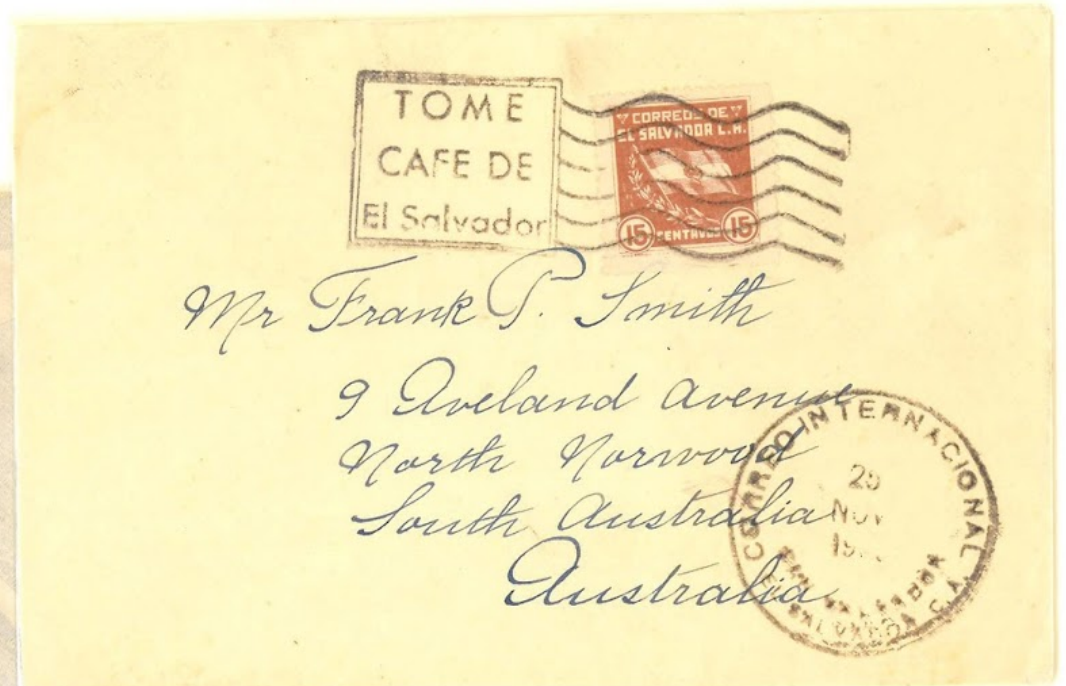 TOME
CAFE DE
El Salvador
CORREOS DE
EL SALVADOR C.A.
15 CENTAVOS 15
Mr Frank P. Smith
9 Aveland Avenue
North Norwood
South Australia
Australia
CORREO INTERNACIONAL Y
29
NOV
SAN SALVADOR
EL SALVADOR